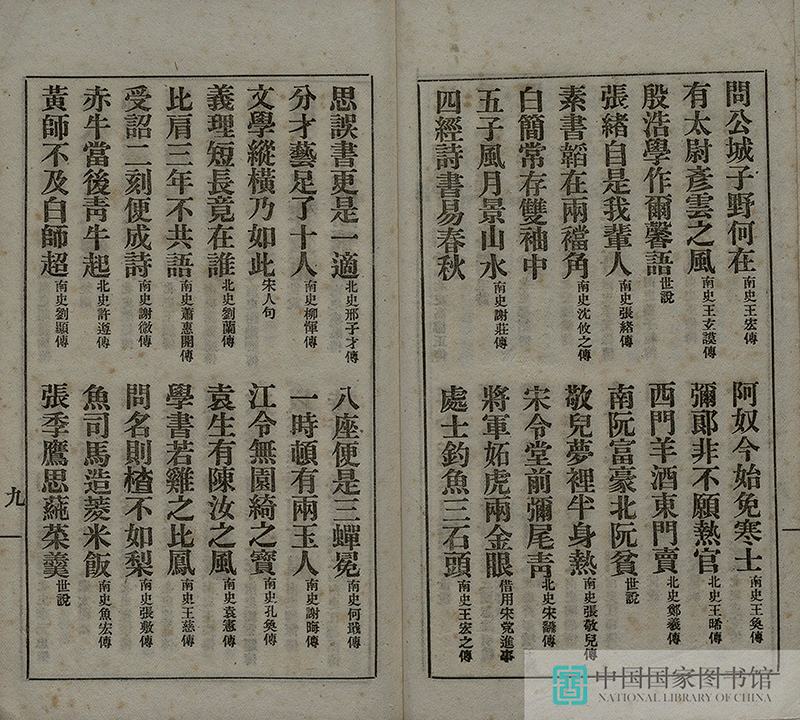 問公城子野何在南史王宏傳 阿奴今始免寒士南史王奐傳
有太尉彥雲之風南史王玄謨傳 彌郞非不願熱官北史王晞傳
殷浩學作爾馨語世說 西門羊酒東門賣北史鄭羲傳
張緒自是我輩人南史張緒傳 南阮富豪北阮貧世說
素書韜在兩襠角南史沈攸之傳 敬兒夢裡半身熱南史張敬兒傳
白簡常存雙袖中 宋令堂前彌尾靑北史宋傳
五子風月景山水南史謝莊傳 將軍妬虎兩金眼借用宋党進事
四經詩書易春秋 處士釣魚三石頭南史王宏之傳
思誤書更是一適北史邢子才傳 八座便是三蟬冕南史何戢傳
分才藝足了十人南史柳惲傳 一時頓有兩玉人南史謝晦傳
文學縱橫乃如此宋人句 江令無園綺之寶南史孔奐傳
義理短長竟在誰北史劉蘭傳 袁生有陳汝之風南史袁憲傳
比肩三年不共語南史蕭惠開傳 學書若雞之比鳳南史王慈傳
受詔二刻便成詩南史謝徵傳 問名則楂不如梨南史張敷傳
赤牛當後靑牛起北史許遵傳 魚司馬造蒸米飯南史魚宏傳
黃師不及白師超南史劉顯傳 張季鷹思蒓菜羹世說
九
中国国家图书馆
NATIONAL LIBRARY OF CHINA